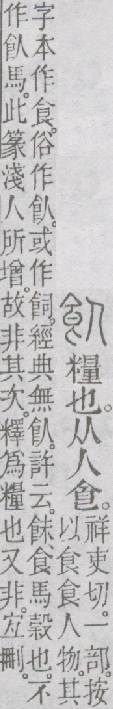 飤糧也。从人食。祥吏切。一部。按
以食食人物。其
字本作食。俗作飤。或作飼。經典無飤。許云。䬴、食馬穀也。不
作飤馬。此篆淺人所增。故非其次。釋爲糧也又非。宐刪。